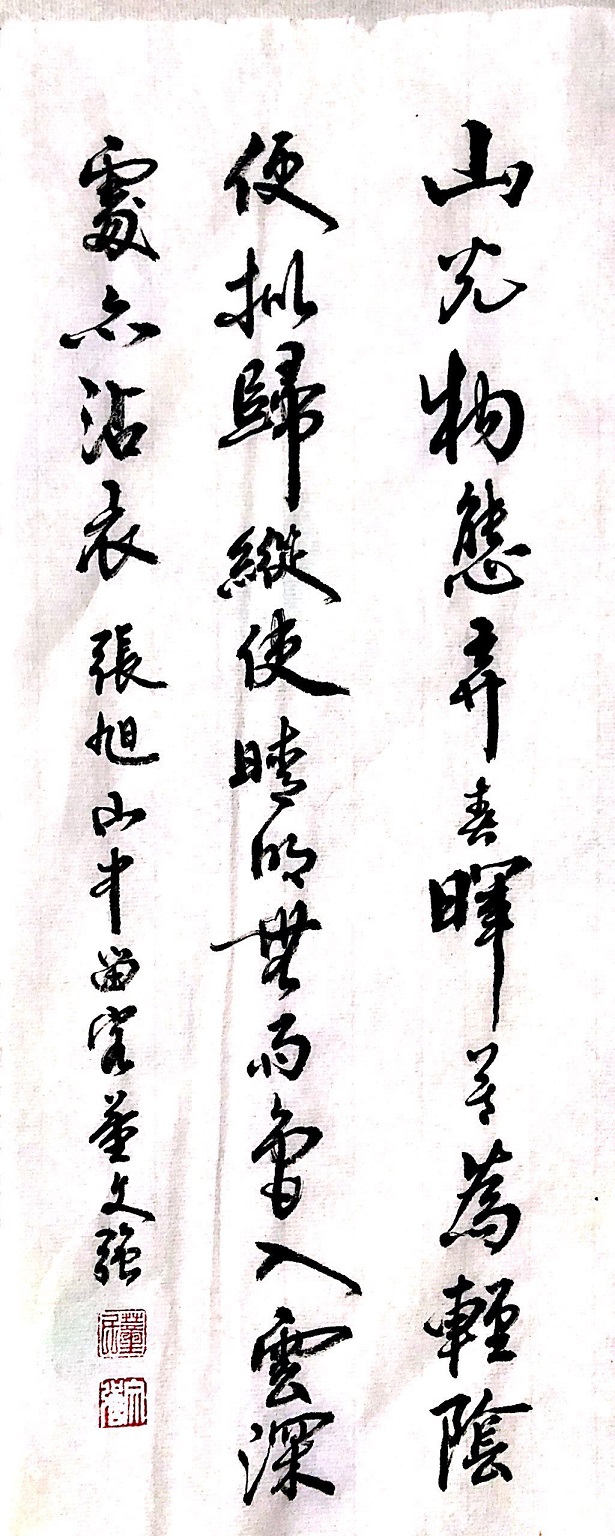 山光物態弄春暉莫為輕陰
便拟歸縱使晴明無雨色入雲深
處亦沾衣 張旭山中留客董文強